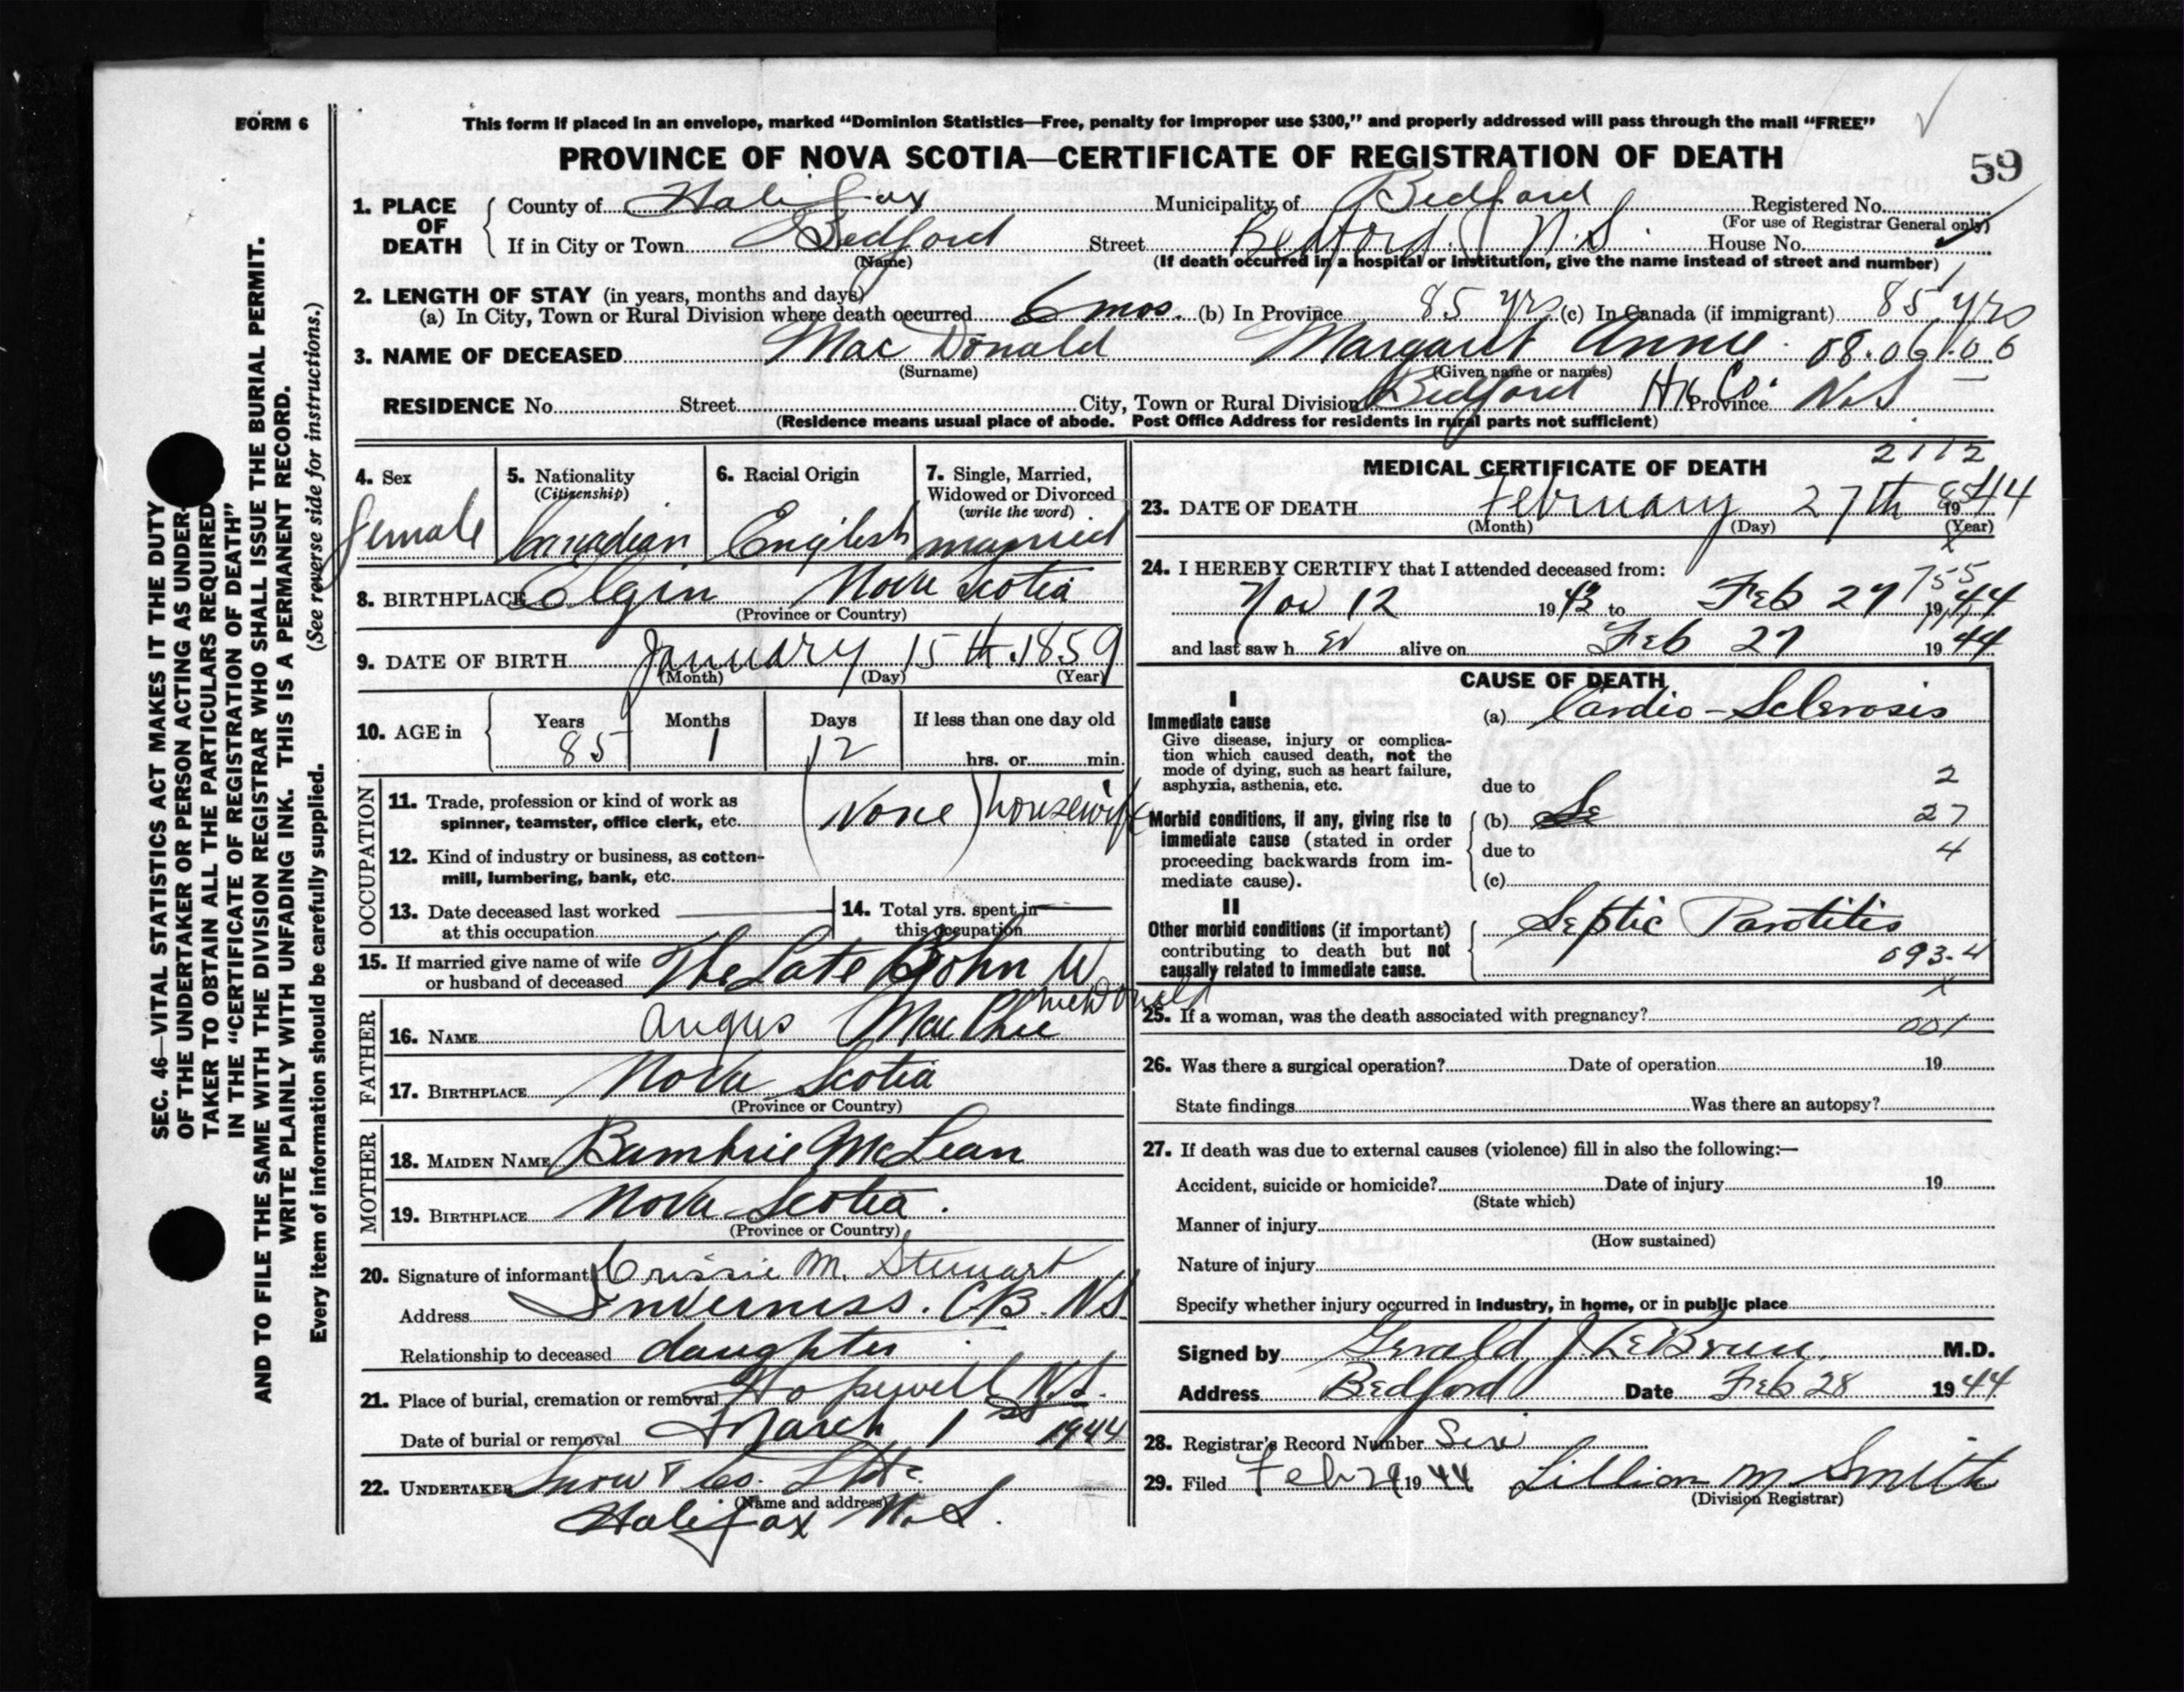 FORM 6
This form if placed in an envelope, marked “Dominion Statistics—Free, penalty for improper use $300,” and properly addressed will pass through the mail “FREE”
PROVINCE OF NOVA SCOTIA—CERTIFICATE OF REGISTRATION OF DEATH
59
1. PLACE OF DEATH
County of Halifax Municipality of Bedford Registered No.
(For use of Registrar General only)
If in City or Town Bedford Street Bedford. N.S. House No.
(Name) (If death occurred in a hospital or institution, give the name instead of street and number)
2. LENGTH OF STAY (in years, months and days)
(a) In City, Town or Rural Division where death occurred 6 mos. (b) In Province 85 yrs (c) In Canada (if immigrant) 85 yrs
3. NAME OF DECEASED Mac Donald Margaret Annie 08.06.06
(Surname) (Given name or names)
RESIDENCE No. Street City, Town or Rural Division Bedford Hx Co. Province N.S.
(Residence means usual place of abode. Post Office Address for residents in rural parts not sufficient)
4. Sex 5. Nationality (Citizenship) 6. Racial Origin 7. Single, Married, Widowed or Divorced (write the word)
female Canadian English married
8. BIRTHPLACE Elgin Nova Scotia
(Province or Country)
9. DATE OF BIRTH January 15th 1859
(Month) (Day) (Year)
10. AGE in Years Months Days If less than one day old
85 1 12 hrs. or min.
OCCUPATION
11. Trade, profession or kind of work as spinner, teamster, office clerk, etc. (None) housewife
12. Kind of industry or business, as cotton-mill, lumbering, bank, etc.
13. Date deceased last worked at this occupation
14. Total yrs. spent in this occupation
15. If married give name of wife or husband of deceased The Late John W McDonald
FATHER
16. NAME Angus MacPhee
17. BIRTHPLACE Nova Scotia
(Province or Country)
MOTHER
18. MAIDEN NAME McLean
19. BIRTHPLACE Nova Scotia.
(Province or Country)
20. Signature of informant Crissie M. Stewart
Address Inverness. C.B. N.S
Relationship to deceased daughter
21. Place of burial, cremation or removal Hopewell N.S.
Date of burial or removal March 1st 1944
22. UNDERTAKER Snow & Co. Ltd.
(Name and address)
Halifax N.S.
MEDICAL CERTIFICATE OF DEATH
2112
23. DATE OF DEATH February 27th 1944
85
(Month) (Day) (Year)
24. I HEREBY CERTIFY that I attended deceased from:
755
Nov 12 1943 to Feb 27 1944
and last saw h er alive on Feb 27 1944
CAUSE OF DEATH
I
Immediate cause (a) Cardio-Sclerosis
Give disease, injury or complication which caused death, not the mode of dying, such as heart failure, asphyxia, asthenia, etc.
due to 2
Morbid conditions, if any, giving rise to immediate cause (stated in order proceeding backwards from immediate cause).
(b) 27
due to 4
(c)
II
Other morbid conditions (if important) contributing to death but not causally related to immediate cause.
Septic Parotitis
093-4
x
25. If a woman, was the death associated with pregnancy? 001
26. Was there a surgical operation? Date of operation 19
State findings Was there an autopsy?
27. If death was due to external causes (violence) fill in also the following:—
Accident, suicide or homicide? Date of injury 19
(State which)
Manner of injury
(How sustained)
Nature of injury
Specify whether injury occurred in industry, in home, or in public place
Signed by Gerald J. LeBrun M.D.
Address Bedford Date Feb 28 1944
28. Registrar's Record Number Six
29. Filed Feb 29 1944 Lillian M Smith
(Division Registrar)
SEC. 46—VITAL STATISTICS ACT MAKES IT THE DUTY
OF THE UNDERTAKER OR PERSON ACTING AS UNDER-
TAKER TO OBTAIN ALL THE PARTICULARS REQUIRED
IN THE “CERTIFICATE OF REGISTRATION OF DEATH”
AND TO FILE THE SAME WITH THE DIVISION REGISTRAR WHO SHALL ISSUE THE BURIAL PERMIT.
WRITE PLAINLY WITH UNFADING INK. THIS IS A PERMANENT RECORD.
Every item of information should be carefully supplied. (See reverse side for instructions.)